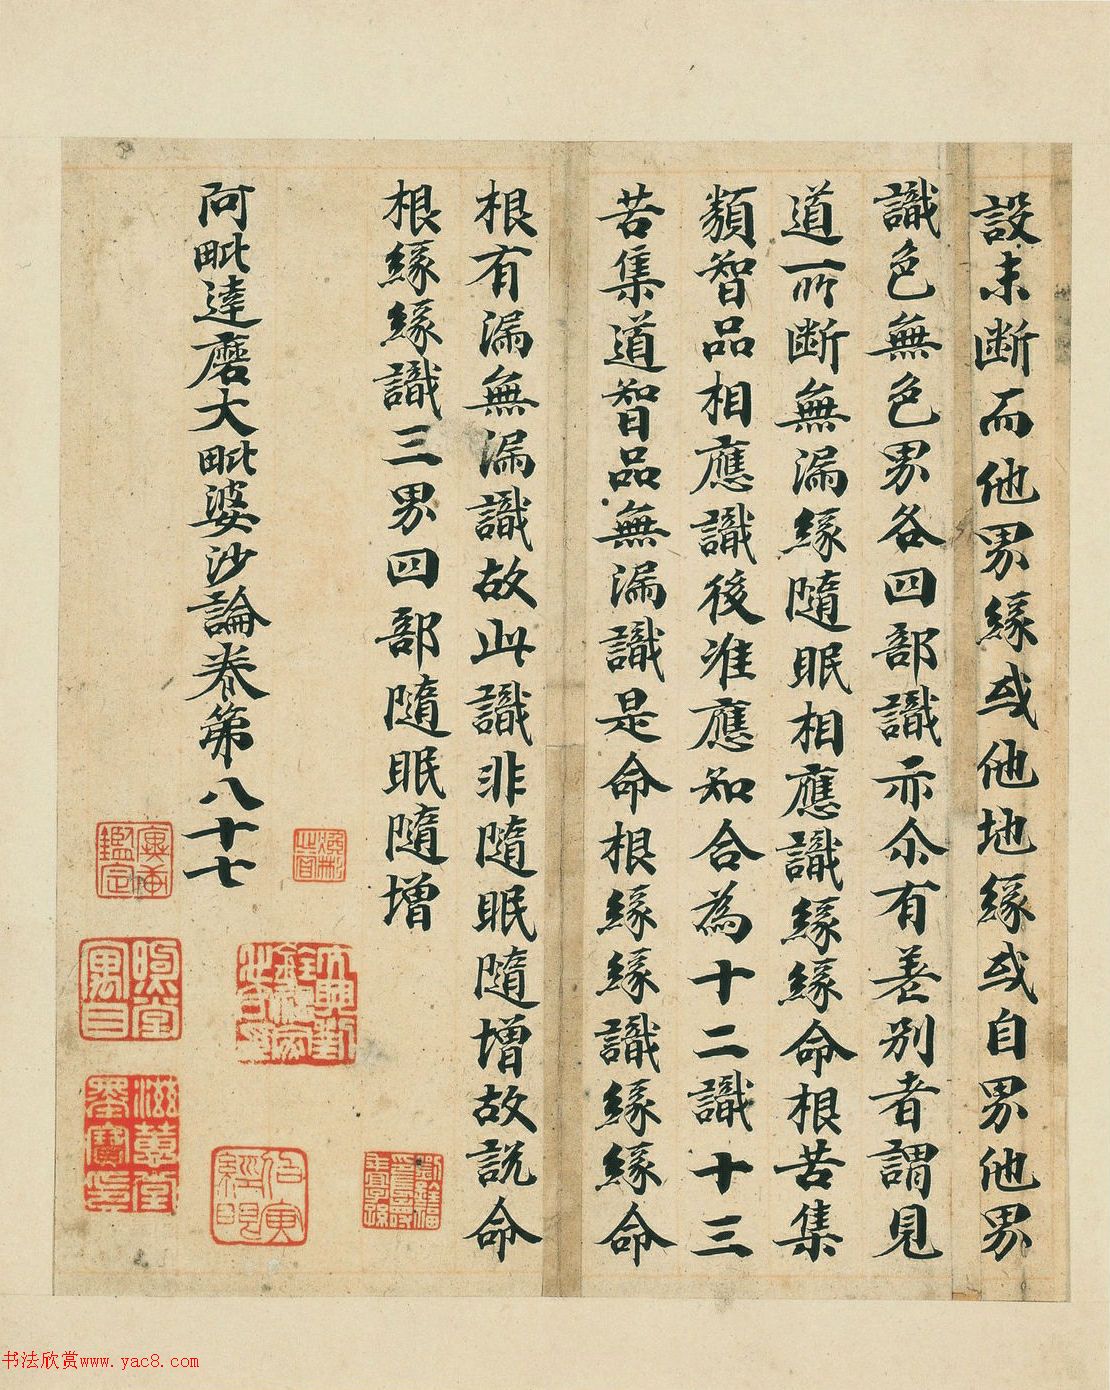 設未斷而他界緣或他地緣或自界他界
識色無色界各四部識亦尒有差別者謂見
道所斷無漏緣隨眠相應識緣緣命根苦集
類智品相應識後准應知合為十二識十三
苦集道智品無漏識是命根緣緣識緣緣命
根有漏無漏識故此識非隨眠隨增故説命
根緣緣識三界四部隨眠隨增
阿毗達磨大毗婆沙論卷第八十七
煦堂寓目
书法欣赏www.yac8.com